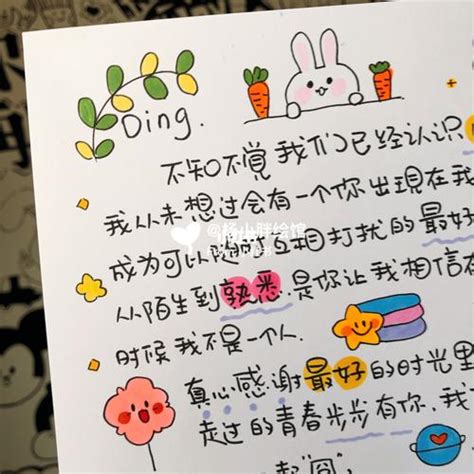 Ding.
不知不覺我们已经认识
我从未想过会有一个你出現在我
@杨小胖绘馆
成为可以随时互相打扰的最好
从陌生到熟悉.是你让我相信在
时候我不是一个人.
真心感谢最好的时光里
走过的青春步步有你.我